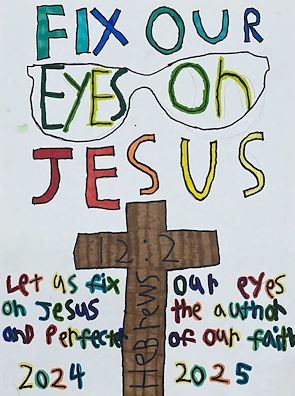 FIX OUR
EYES on
JESUS
12:2
Hebrews
Let us fix our eyes
on Jesus the author
and Perfecter of our faith
2024 2025